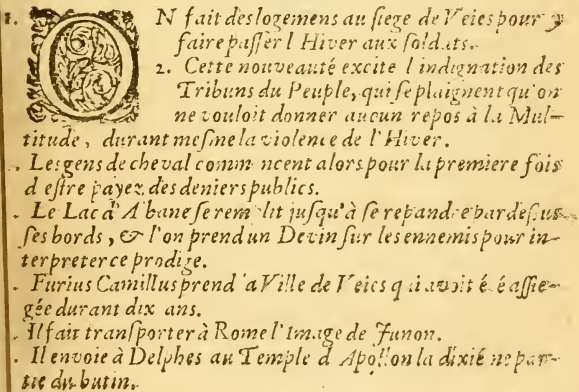 1. ON fait des logemens au siege de Veies pour y
faire passer l Hiver aux soldats.
2. Cette nouveauté excite l indignation des
Tribuns du Peuple, qui se plaignent qu'on
ne vouloit donner aucun repos à la Mul-
titude, durant mesme la violence de l'Hiver.
. Les gens de cheval comm ncent alors pour la premiere fois
d estre payez des deniers publics.
. Le Lac d'Abane se rem lit jusqu'à se repand e par dessus
ses bords, & l'on prend un Devin sur les ennemis pour in-
terpreter ce prodige.
. Furius Camillus prend a Ville de Veies q i avoit é é assie-
gée durant dix ans.
. Il fait transporter à Rome l'Image de Junon.
. Il envoie à Delphes au Temple d Apollon la dixié ne par-
tie du butin.